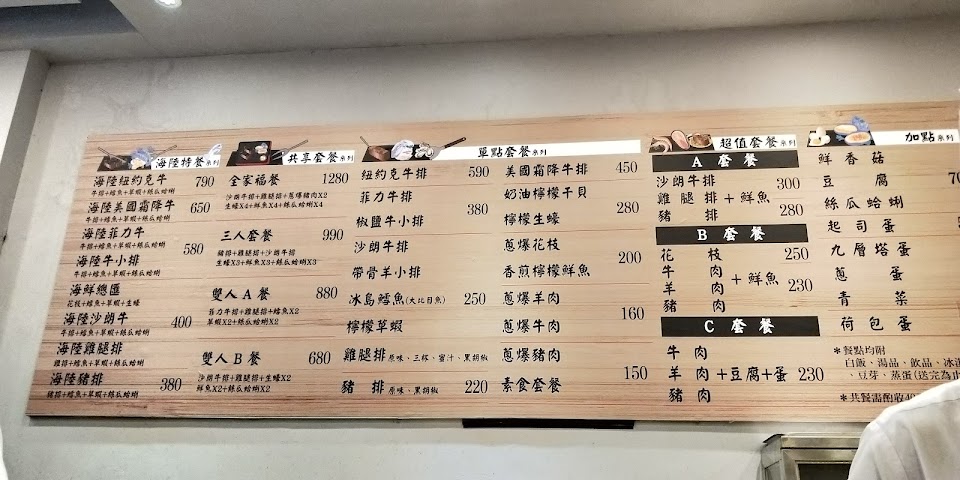 海陸特餐系列
海陸紐約克牛 790
牛排+鱈魚+草蝦+絲瓜蛤蜊
海陸美國霜降牛 650
牛排+鱈魚+草蝦+絲瓜蛤蜊
海陸菲力牛
牛排+鱈魚+草蝦+絲瓜蛤蜊
580
海陸牛小排
牛排+鱈魚+草蝦+絲瓜蛤蜊
海鮮總匯
花枝+鱈魚+草蝦+生蠔
海陸沙朗牛 400
牛排+鱈魚+草蝦+絲瓜蛤蜊
海陸雞腿排
雞排+鱈魚+草蝦+絲瓜蛤蜊
海陸豬排 380
豬排+鱈魚+草蝦+絲瓜蛤蜊
共享套餐系列
全家福餐 1280
沙朗牛排+雞腿排+蔥爆豬肉X2
生蠔X4+鮮魚X4+絲瓜蛤蜊X4
三人套餐 990
豬排+雞腿排+沙朗牛排
生蠔X3+鮮魚X3+絲瓜蛤蜊X3
雙人A餐 880
菲力牛排+雞腿排+鱈魚X2
草蝦X2+絲瓜蛤蜊X2
雙人B餐 680
沙朗牛排+雞腿排+生蠔X2
鮮魚X2+絲瓜蛤蜊X2
單點套餐系列
紐約克牛排 590
菲力牛排
380
椒鹽牛小排
沙朗牛排
帶骨羊小排
冰島鱈魚(大比目魚) 250
檸檬草蝦
雞腿排 原味、三杯、蜜汁、黑胡椒
豬 排 原味、黑胡椒 220
美國霜降牛排 450
奶油檸檬干貝
280
檸檬生蠔
蔥爆花枝
200
香煎檸檬鮮魚
蔥爆羊肉
160
蔥爆牛肉
蔥爆豬肉
素食套餐 150
超值套餐系列
A 套餐
沙朗牛排 300
雞腿排+鮮魚
豬 排 280
B 套餐
花 枝 250
牛 肉
羊 肉 +鮮魚 230
豬 肉
C 套餐
牛 肉
羊 肉 +豆腐+蛋 230
豬 肉
加點系列
鮮香菇
豆 腐
絲瓜蛤蜊
起司蛋
九層塔蛋
蔥 蛋
青 菜
荷包蛋
＊餐點均附
白飯、湯品、飲品、冰淇
、豆芽、蒸蛋(送完為止
＊共餐需酌收